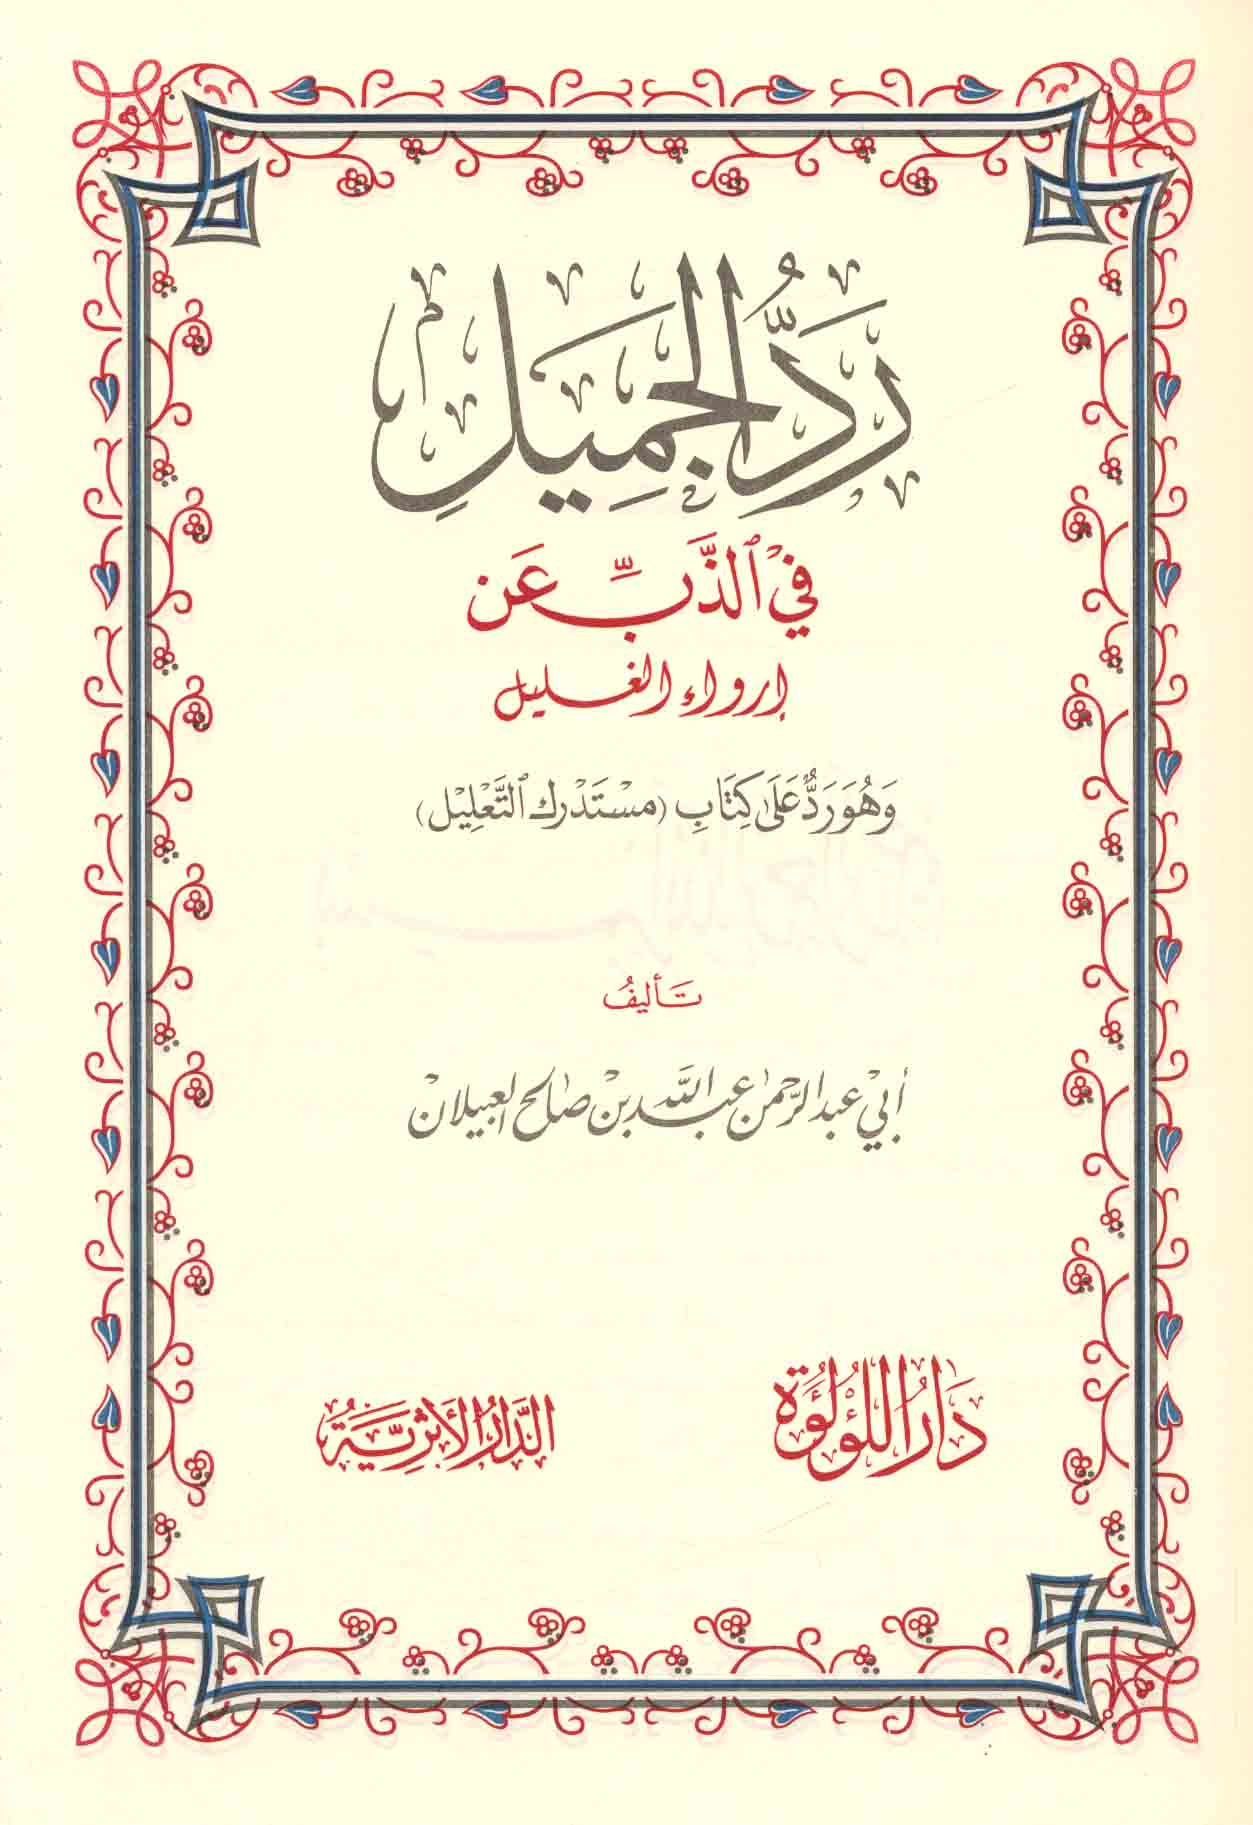 رَدُّ الجَمِيلِ
فِي الذَّبِّ عَن
إرواء الغليل
وَهُوَ رَدٌّ عَلَى كِتَابِ (مُسْتَدْرَك التَّعْلِيْل)
تَأليفُ
أبي عبد الرحمن عبد الله بن صالح العبيلان
دَارُ اللُّؤلُؤَة
الدَّارُ الأَثَرِيَّةُ